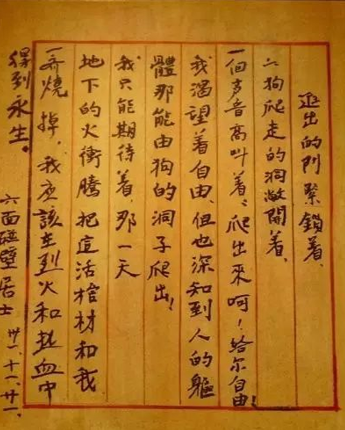 出的門緊鎖着、
狗爬走的洞敞開着、
一個声音高叫着：爬出來呵！给尔自由！
我渴望着自由、但也深知到人的軀
體那能由狗的洞子爬出！
我只能期待着、那一天
地下的火衝騰把這活棺材和我
一齊燒掉，我應該在烈火和热血中
得到永生。
六面碰壁居士 卅一、十一、廿一.